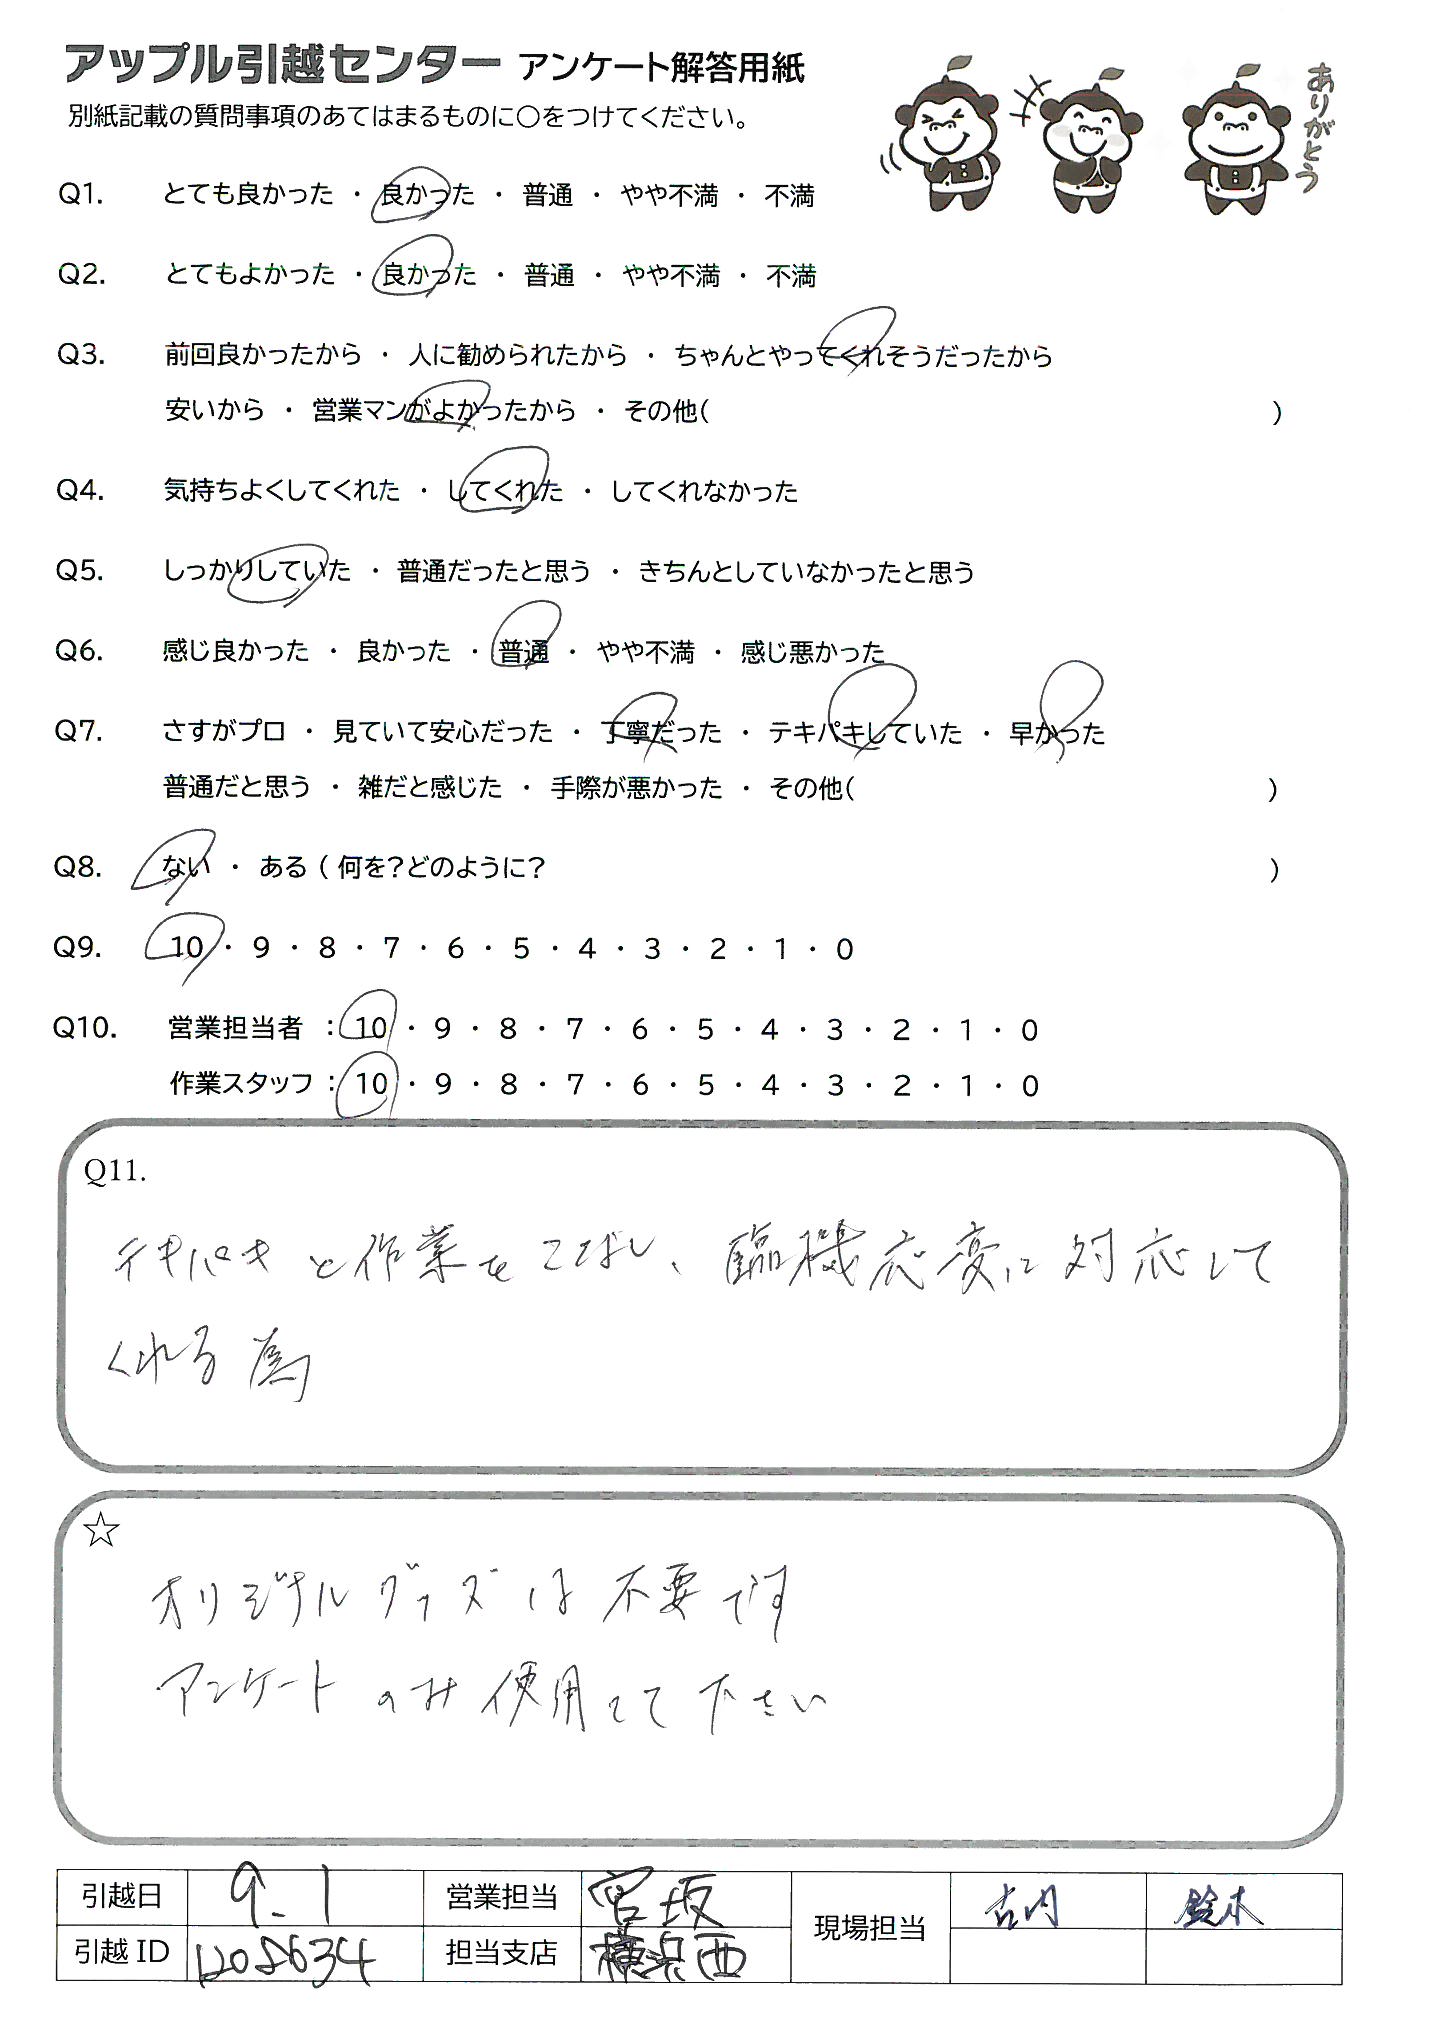 アップル引越センター アンケート解答用紙
別紙記載の質問事項のあてはまるものに○をつけてください。
ありがとう
Q1. とても良かった ・ 良かった ・ 普通 ・ やや不満 ・ 不満
Q2. とてもよかった ・ 良かった ・ 普通 ・ やや不満 ・ 不満
Q3. 前回良かったから ・ 人に勧められたから ・ ちゃんとやってくれそうだったから
安いから ・ 営業マンがよかったから ・ その他( )
Q4. 気持ちよくしてくれた ・ してくれた ・ してくれなかった
Q5. しっかりしていた ・ 普通だったと思う ・ きちんとしていなかったと思う
Q6. 感じ良かった ・ 良かった ・ 普通 ・ やや不満 ・ 感じ悪かった
Q7. さすがプロ ・ 見ていて安心だった ・ 丁寧だった ・ テキパキしていた ・ 早かった
普通だと思う ・ 雑だと感じた ・ 手際が悪かった ・ その他( )
Q8. ない ・ ある ( 何を?どのように? )
Q9. 10 ・ 9 ・ 8 ・ 7 ・ 6 ・ 5 ・ 4 ・ 3 ・ 2 ・ 1 ・ 0
Q10. 営業担当者 : 10 ・ 9 ・ 8 ・ 7 ・ 6 ・ 5 ・ 4 ・ 3 ・ 2 ・ 1 ・ 0
作業スタッフ : 10 ・ 9 ・ 8 ・ 7 ・ 6 ・ 5 ・ 4 ・ 3 ・ 2 ・ 1 ・ 0
Q11.
テキパキと作業をこなし、臨機応変に対応して
くれる為
☆
オリジナルグッズは不要です
アンケートのみ使用して下さい
引越日 9.1 営業担当 宮坂 現場担当 古内 鈴木
引越ID 担当支店 横浜西